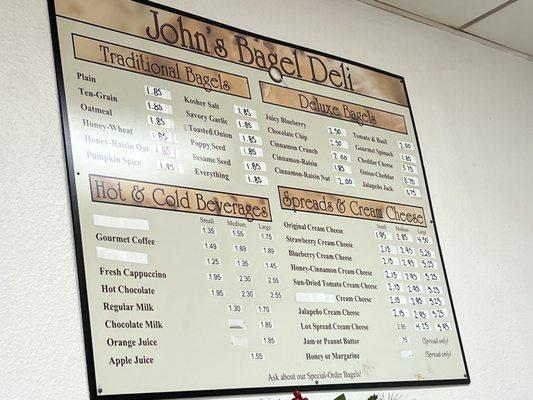 John's Bagel Deli
Traditional Bagels
Plain 1.85
Ten-Grain 1.85
Oatmeal 1.85
Honey-Wheat 1.85
Honey-Raisin Oat 1.85
Pumpkin Spice 1.85
Kosher Salt 1.85
Savory Garlic 1.85
Toasted Onion 1.85
Poppy Seed 1.85
Sesame Seed 1.85
Everything 1.85
Deluxe Bagels
Juicy Blueberry
Chocolate Chip 2.50
Cinnamon Crunch 2.50
Cinnamon-Raisin 2.00
Cinnamon-Raisin Nut 2.00
Tomato & Basil 2.00
Gourmet Spinach 1.85
Cheddar Cheese
Onion-Cheddar 3.75
Jalapeño Jack 3.75
Hot & Cold Beverages
Small Medium Large
1.35 1.55 1.75
Gourmet Coffee 1.49 1.69 1.89
1.25 1.35 1.45
Fresh Cappuccino 1.95 2.30 2.55
Hot Chocolate 1.95 2.30 2.55
Regular Milk 1.30 1.70
Chocolate Milk 1.85
Orange Juice 1.85
Apple Juice 1.55
Spreads & Cream Cheese
Small Medium Large
Original Cream Cheese 1.85 2.85 4.50
Strawberry Cream Cheese 2.15 2.95 5.25
Blueberry Cream Cheese 2.15 2.95 5.25
Honey-Cinnamon Cream Cheese 2.15 2.95 5.25
Sun-Dried Tomato Cream Cheese 2.15 2.95 5.25
Cream Cheese 2.15 2.95 5.25
Jalapeño Cream Cheese 2.15 2.95 5.25
Lox Spread Cream Cheese 2.95 4.25 5.95
Jam or Peanut Butter .75 (Spread only)
Honey or Margarine (Spread only)
Ask about our Special-Order Bagels!